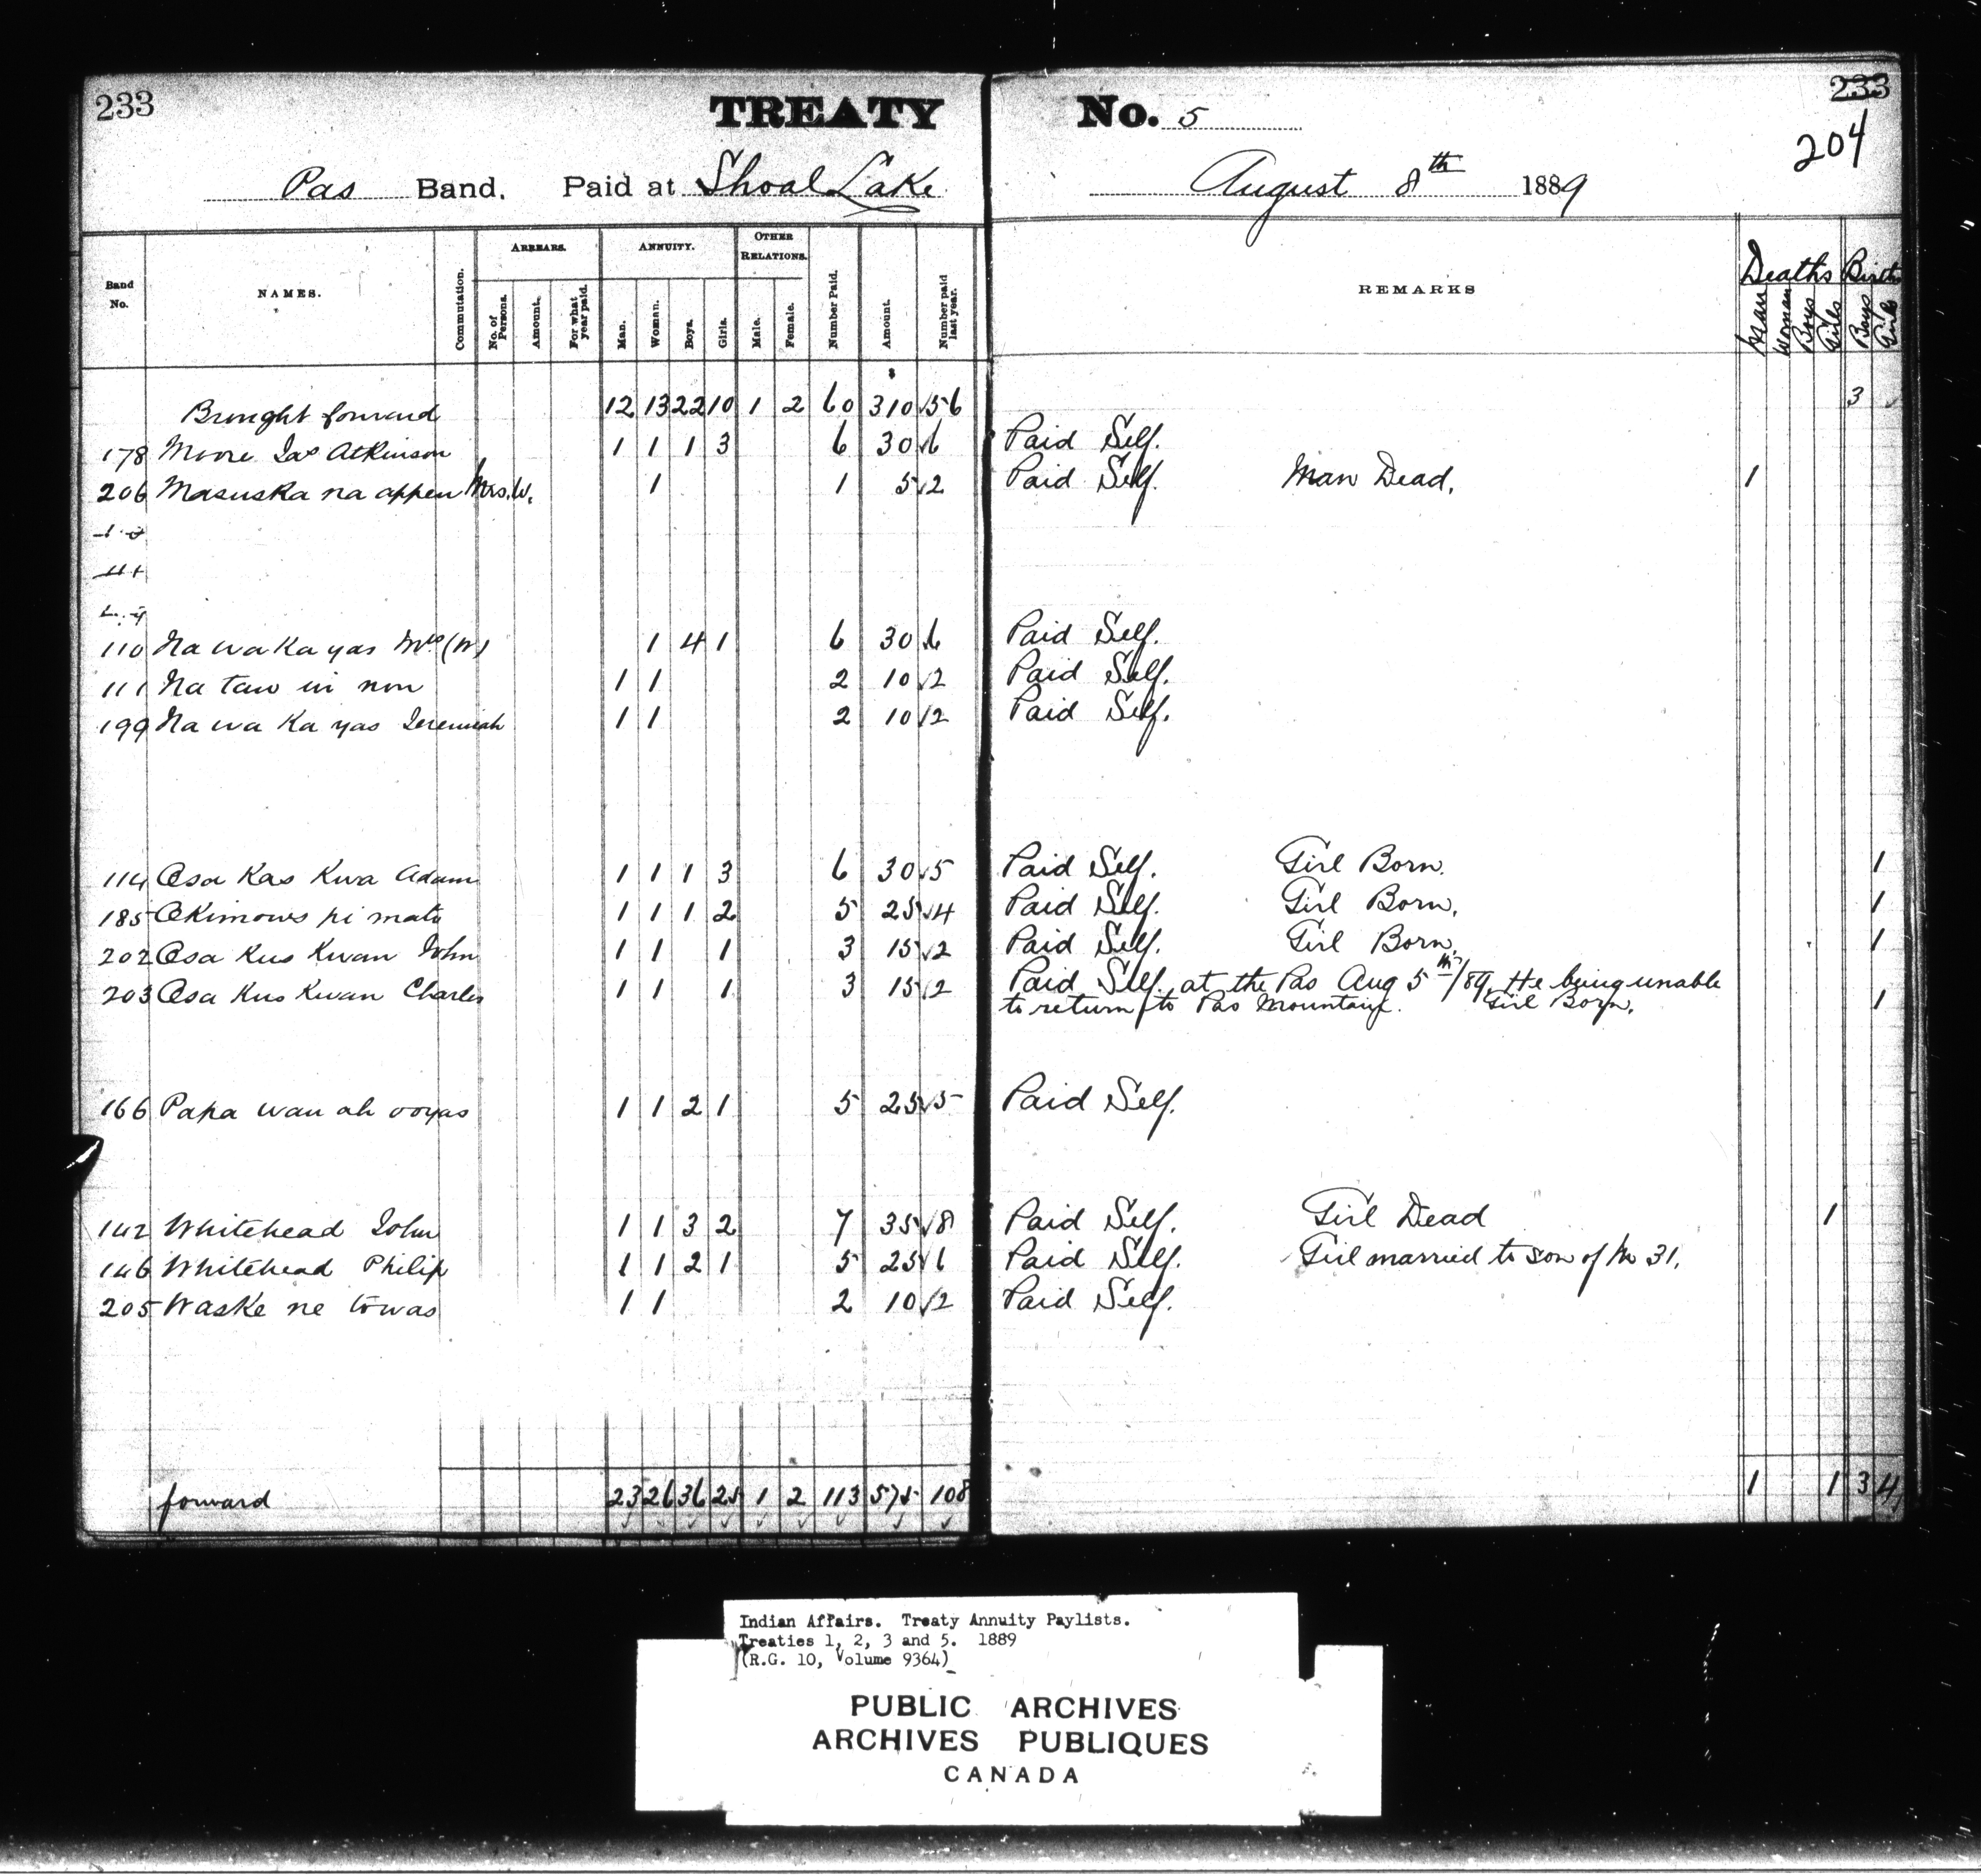 233 TREATY No. 5 233
204
Pas Band. Paid at Shoal Lake August 8th 1889
Band No. NAMES. Commutation. ARREARS. No. of Persons. Amount. For what year paid. ANNUITY. Man. Woman. Boys. Girls. OTHER RELATIONS. Male. Female. Number Paid. Amount. Number paid last year. REMARKS Deaths Man Woman Boys Girls Births Boys Girls
Brought forward 12 13 22 10 1 2 60 310 56 3
178 Moore Jas Atkinson 1 1 1 3 6 30 6 Paid Self.
206 Masuska na appeu Mrs. W. 1 1 5 2 Paid Self. Man Dead. 1
110 Na wa Ka yas Mrs (W) 1 4 1 6 30 6 Paid Self.
111 Na taw in non 1 1 2 10 2 Paid Self.
199 Na wa Ka yas Jeremiah 1 1 2 10 2 Paid Self.
114 Osa Kas Kwa Adam 1 1 1 3 6 30 5 Paid Self. Girl Born. 1
185 Okimows pi mate 1 1 1 2 5 25 4 Paid Self. Girl Born. 1
202 Osa Kus Kwan John 1 1 1 3 15 2 Paid Self. Girl Born. 1
203 Osa Kus Kwan Charles 1 1 1 3 15 2 Paid Self at the Pas Aug 5th/89. He being unable
to return to Pas Mountain. Girl Born. 1
166 Papa wau ah ooyas 1 1 2 1 5 25 5 Paid Self.
142 Whitehead John 1 1 3 2 7 35 8 Paid Self. Girl Dead 1
146 Whitehead Philip 1 1 2 1 5 25 6 Paid Self. Girl married to son of No 31.
205 Waske ne towas 1 1 2 10 2 Paid Self.
forward 23 26 36 25 1 2 113 575 108 1 1 3 4
Indian Affairs. Treaty Annuity Paylists.
Treaties 1, 2, 3 and 5. 1889
(R.G. 10, Volume 9364)
PUBLIC ARCHIVES
ARCHIVES PUBLIQUES
CANADA